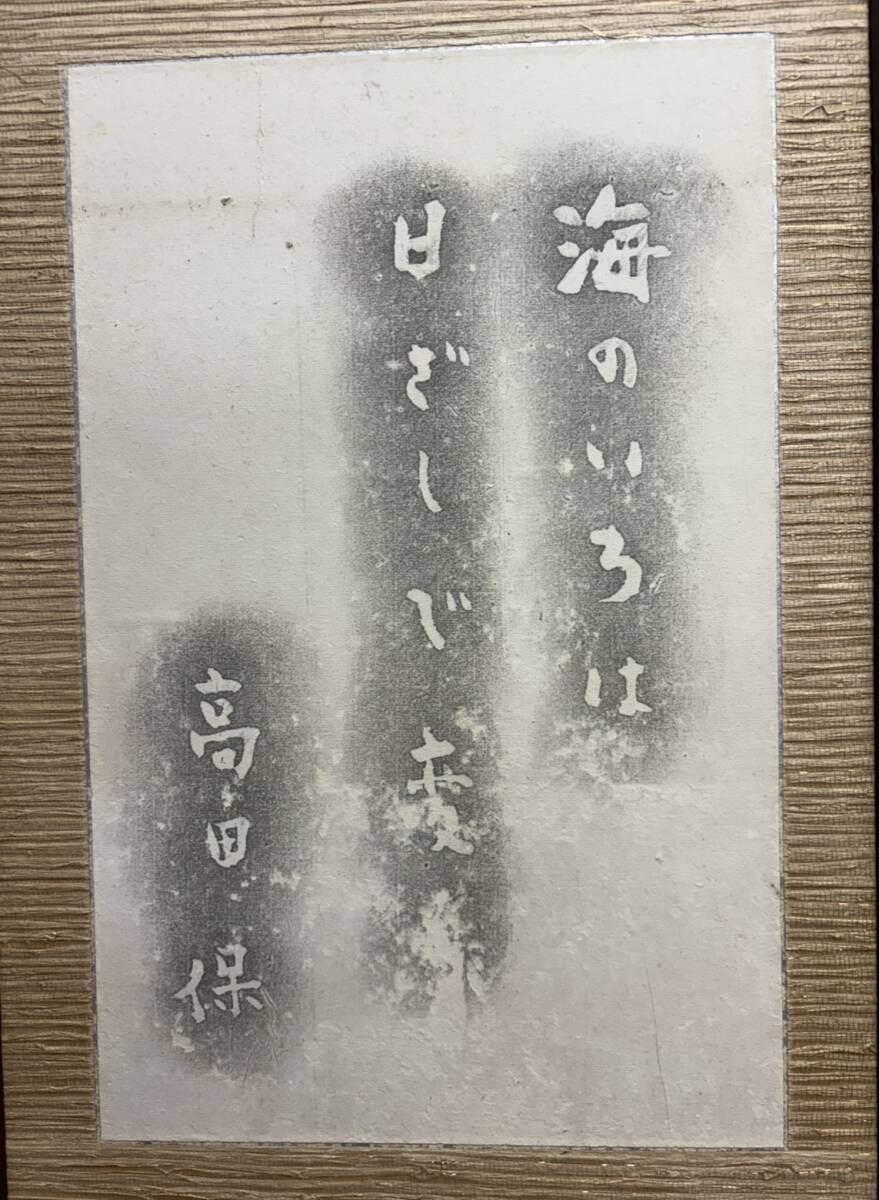 海のいろは
日ざしで変
高田保